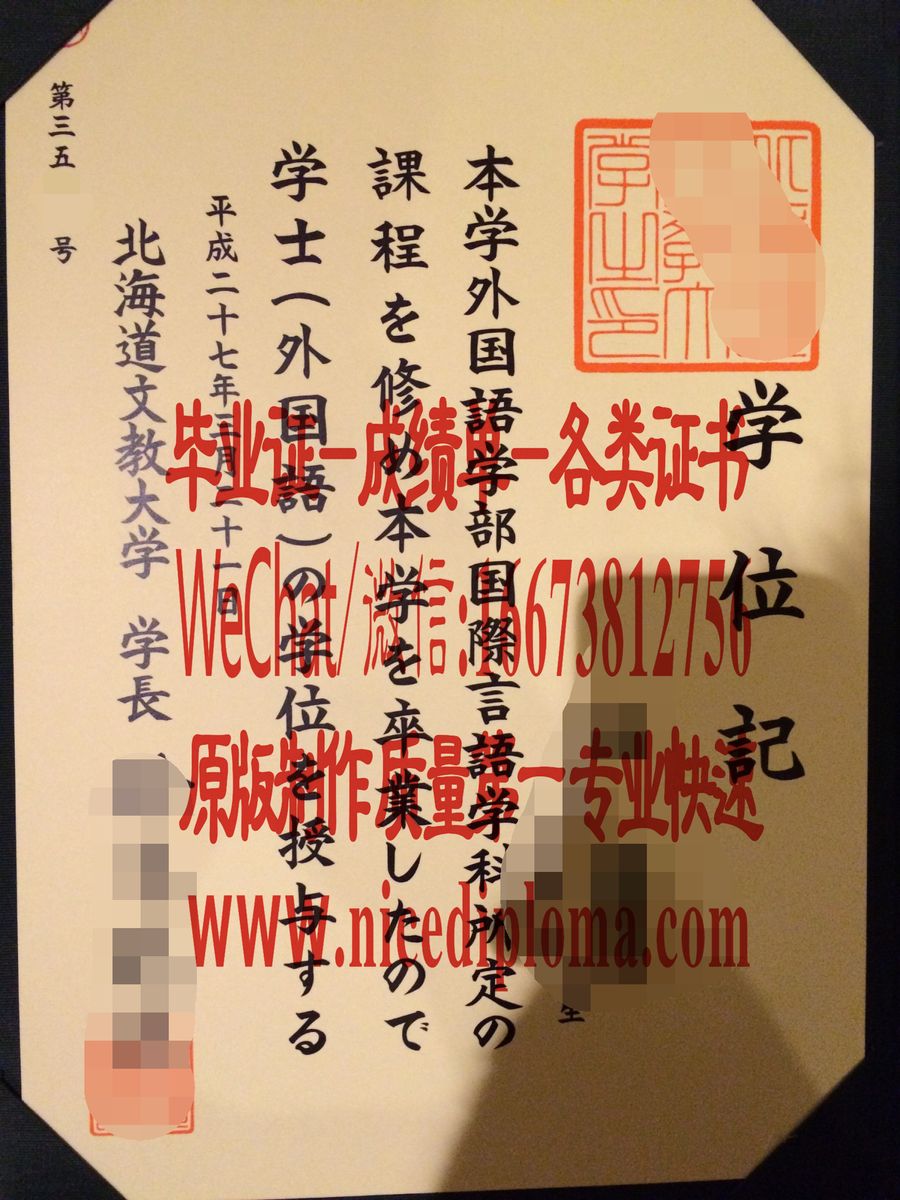 学位記
本学外国語学部国際言語学科所定の
課程を修め本学を卒業したので
学士(外国語)の学位を授与する
平成二十七年三月二十一日
北海道文教大学 学長
第三五 号
毕业证-成绩单-各类证书
WeChat/微信:16673812756
原版制作质量第一专业快速
www.nicediploma.com